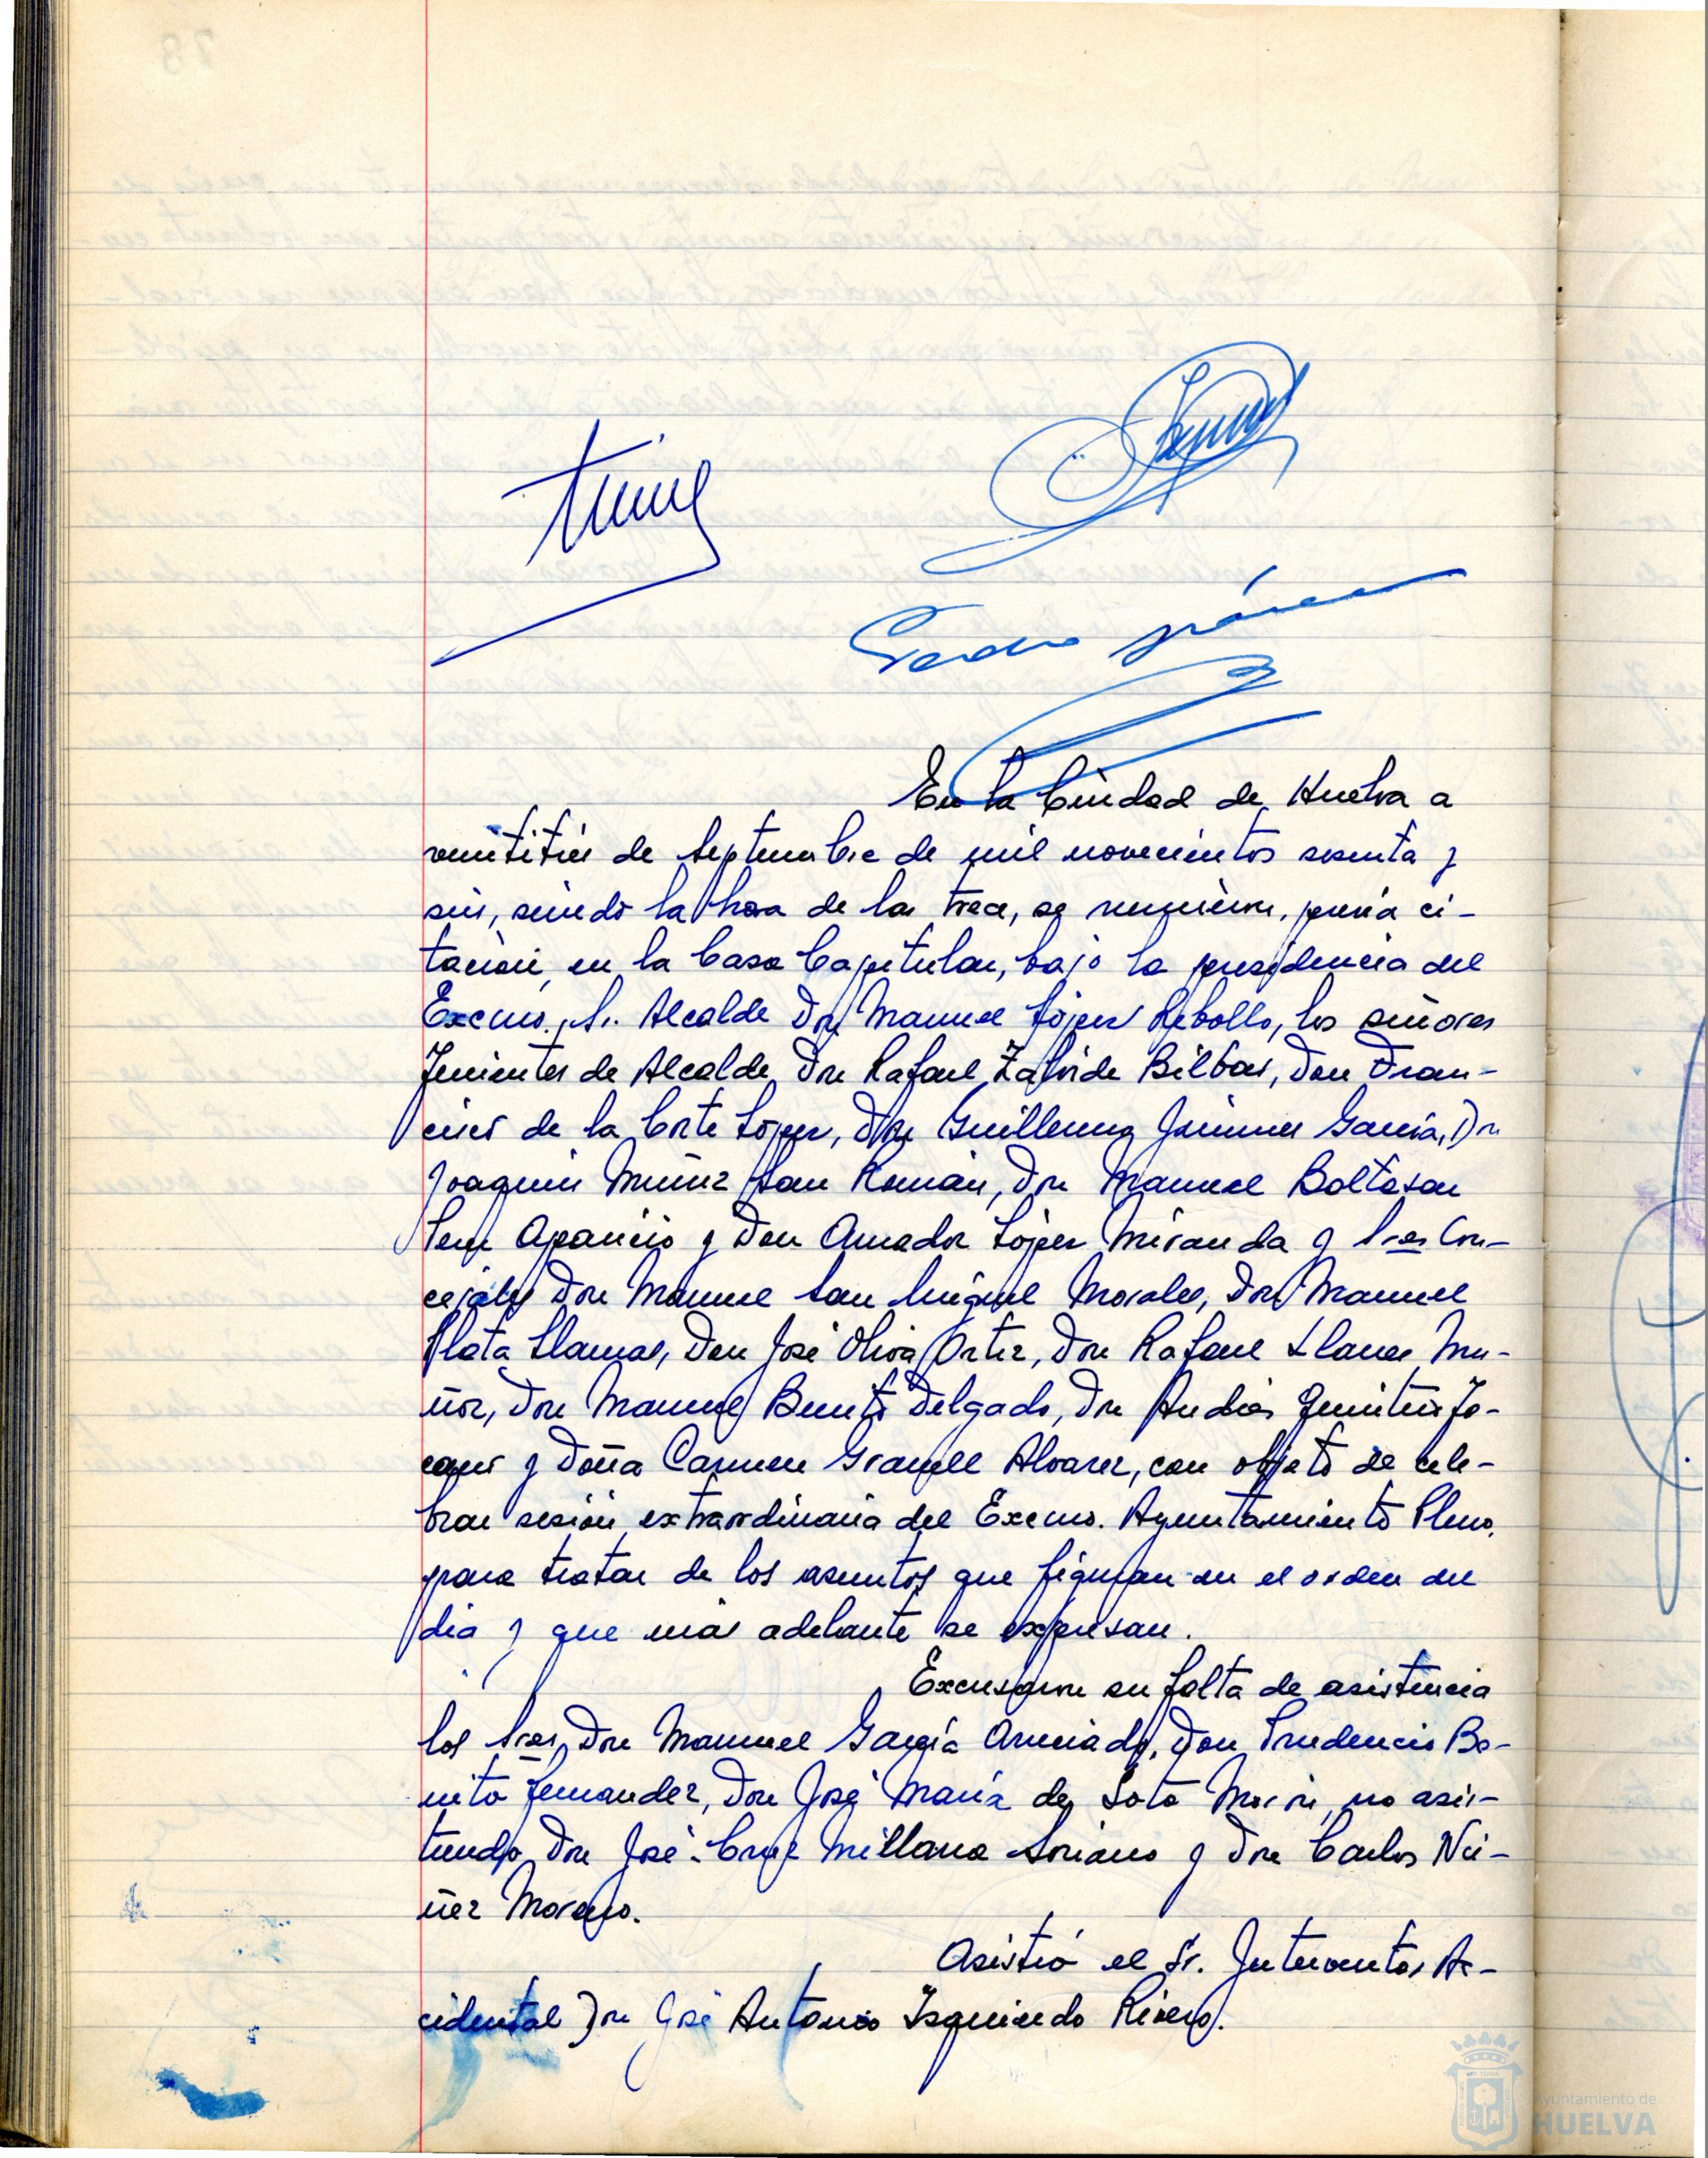 En la Ciudad de Huelva a
veintitrés de Septiembre de mil novecientos sesenta y
seis, siendo la hora de las trece, se reunieron, previa ci-
tación, en la Casa Capitular, bajo la presidencia del
Excmo. Sr. Alcalde Don Manuel López Rebollo, los señores
Tenientes de Alcalde Don Rafael Zalvide Bilbao, Don Fran-
cisco de la Corte López, Don Guillermo Jiménez García, Don
Joaquín Muñiz San Román, Don Manuel Baltasar
Aparicio y Don Amador López Miranda y Sres Con-
cejales Don Manuel San Miguel Morales, Don Manuel
Plata Llamas, Don José Oliva Ortiz, Don Rafael Llanes Mu-
ñoz, Don Manuel Benito Delgado, Don Andrés
y Doña Carmen Granell Alvarez, con objeto de cele-
brar sesión extraordinaria del Excmo. Ayuntamiento Pleno,
para tratar de los asuntos que figuran en el orden del
dia y que más adelante se expresan.
Excusaron su falta de asistencia
los Sres. Don Manuel García, Don Prudencio Be-
nito Fernandez, Don José María de Soto Morón, no asis-
tiendo Don José-Cruz Millana Soriano y Don Carlos Nú-
ñez Moreno.
Asistió el Sr. Interventor Ac-
cidental Don José Antonio Izquierdo Rivero.
Ayuntamiento de
HUELVA